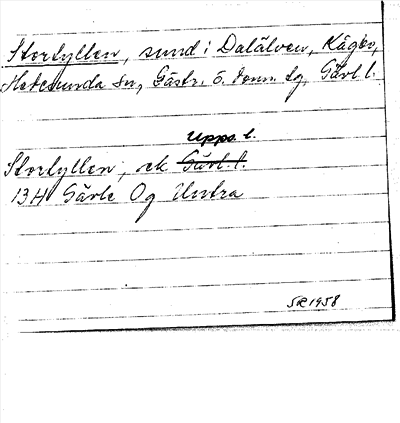 Storhyllen, sund i Dalälven, Kågbo,
Hedesunda sn, Gästr. ö. dom. sg, Gävl. l.
Upps. l.
Storhyllen, ek Gävl. l.
13H Gävle Og Untra
SR 1958